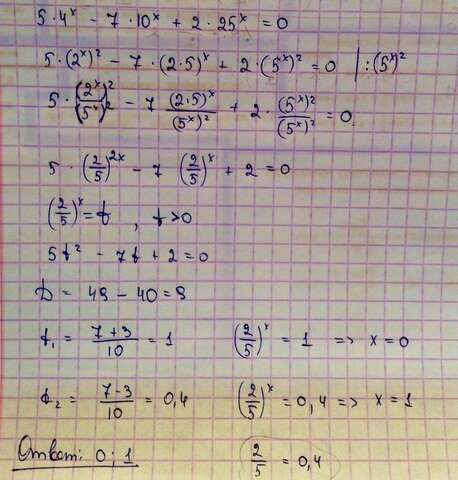 5 · 4ˣ - 7 · 10ˣ + 2 · 25ˣ = 0
5 · (2ˣ)² - 7 · (2·5)ˣ + 2 · (5ˣ)² = 0 | : (5ˣ)²
5 · (2ˣ)²/(5ˣ)² - 7 (2·5)ˣ/(5ˣ)² + 2 · (5ˣ)²/(5ˣ)² = 0
5 · (2/5)²ˣ - 7 (2/5)ˣ + 2 = 0
(2/5)ˣ = t, t > 0
5t² - 7t + 2 = 0
D = 49 - 40 = 9
t₁ = (7+3)/10 = 1 (2/5)ˣ = 1 => x = 0
t₂ = (7-3)/10 = 0,4 (2/5)ˣ = 0,4 => x = 1
Ответ: 0; 1 2/5 = 0,4